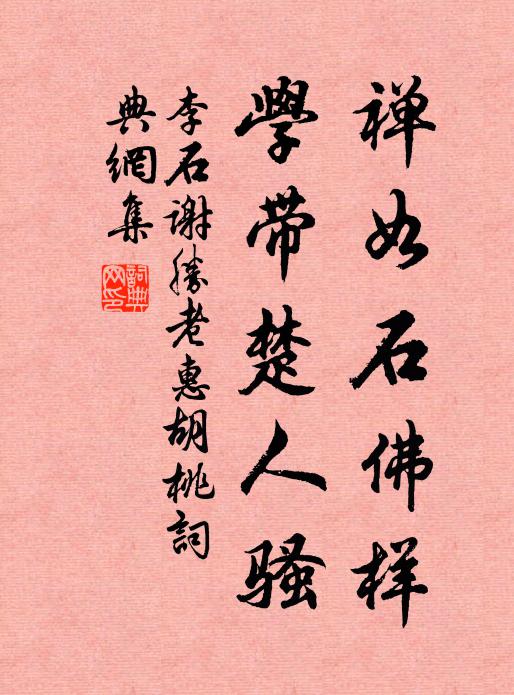 禅如石佛样
學带楚人骚
李石谢勝老惠胡桃詞
典網集
詞典网印